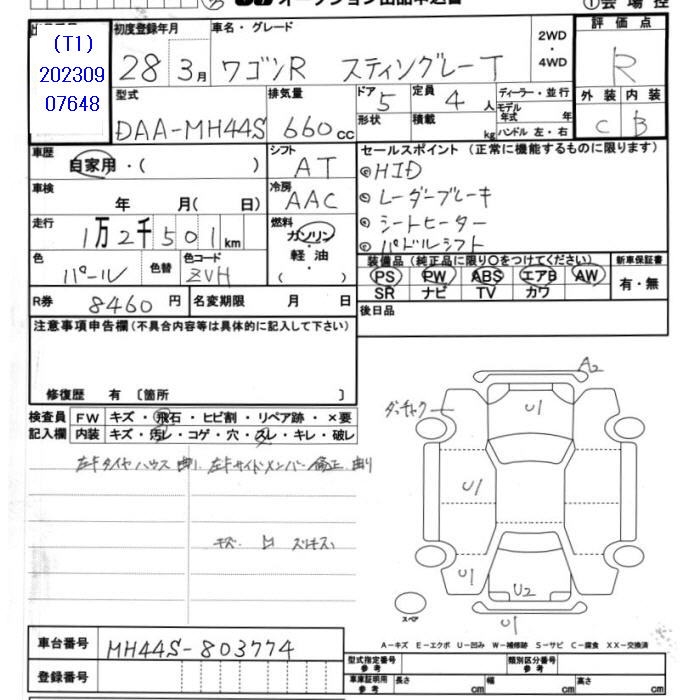 オークション出品申込書 ①会場控
(T1)
202309
07648
初度登録年月 28年3月
車名・グレード ワゴンR スティングレーT
2WD・4WD
評価点 R
型式 DAA-MH44S
排気量 660cc
ドア 5 形状
定員 4人 積載 kg
ディーラー・並行
モデル年式 年
ハンドル 左・右
外装 C 内装 B
車歴 自家用・( )
シフト AT
セールスポイント (正常に機能するものに限ります)
HID
レーダーブレーキ
シートヒーター
パドルシフト
車検 年 月( 日)
冷房 AAC
走行 1万2千501km
燃料 ガソリン・軽油・( )
色 パール 色替 色コード ZVH
装備品 (純正品に限り○をつけてください) 新車保証書
PS PW ABS エアB AW
SR ナビ TV カワ
有・無
R券 8460円 名変期限 月 日
後日品
注意事項申告欄 (不具合内容等は具体的に記入して下さい)
修復歴 有 〔箇所 〕
検査員記入欄
FW キズ・飛石・ヒビ割・リペア跡・×要
内装 キズ・汚レ・コゲ・穴・スレ・キレ・破レ
左F タイヤハウス 曲り、左F サイドメンバー 修正、曲り
A2
U1
U1
U1
U2
U1
スペア
A-キズ E-エクボ U-凹み W-補修跡 S-サビ C-腐食 XX-交換済
車台番号 MH44S-803774
登録番号
型式指定番号 参考 類別区分番号 参考
車庫証明用 参考 長さ cm 幅 cm 高さ cm